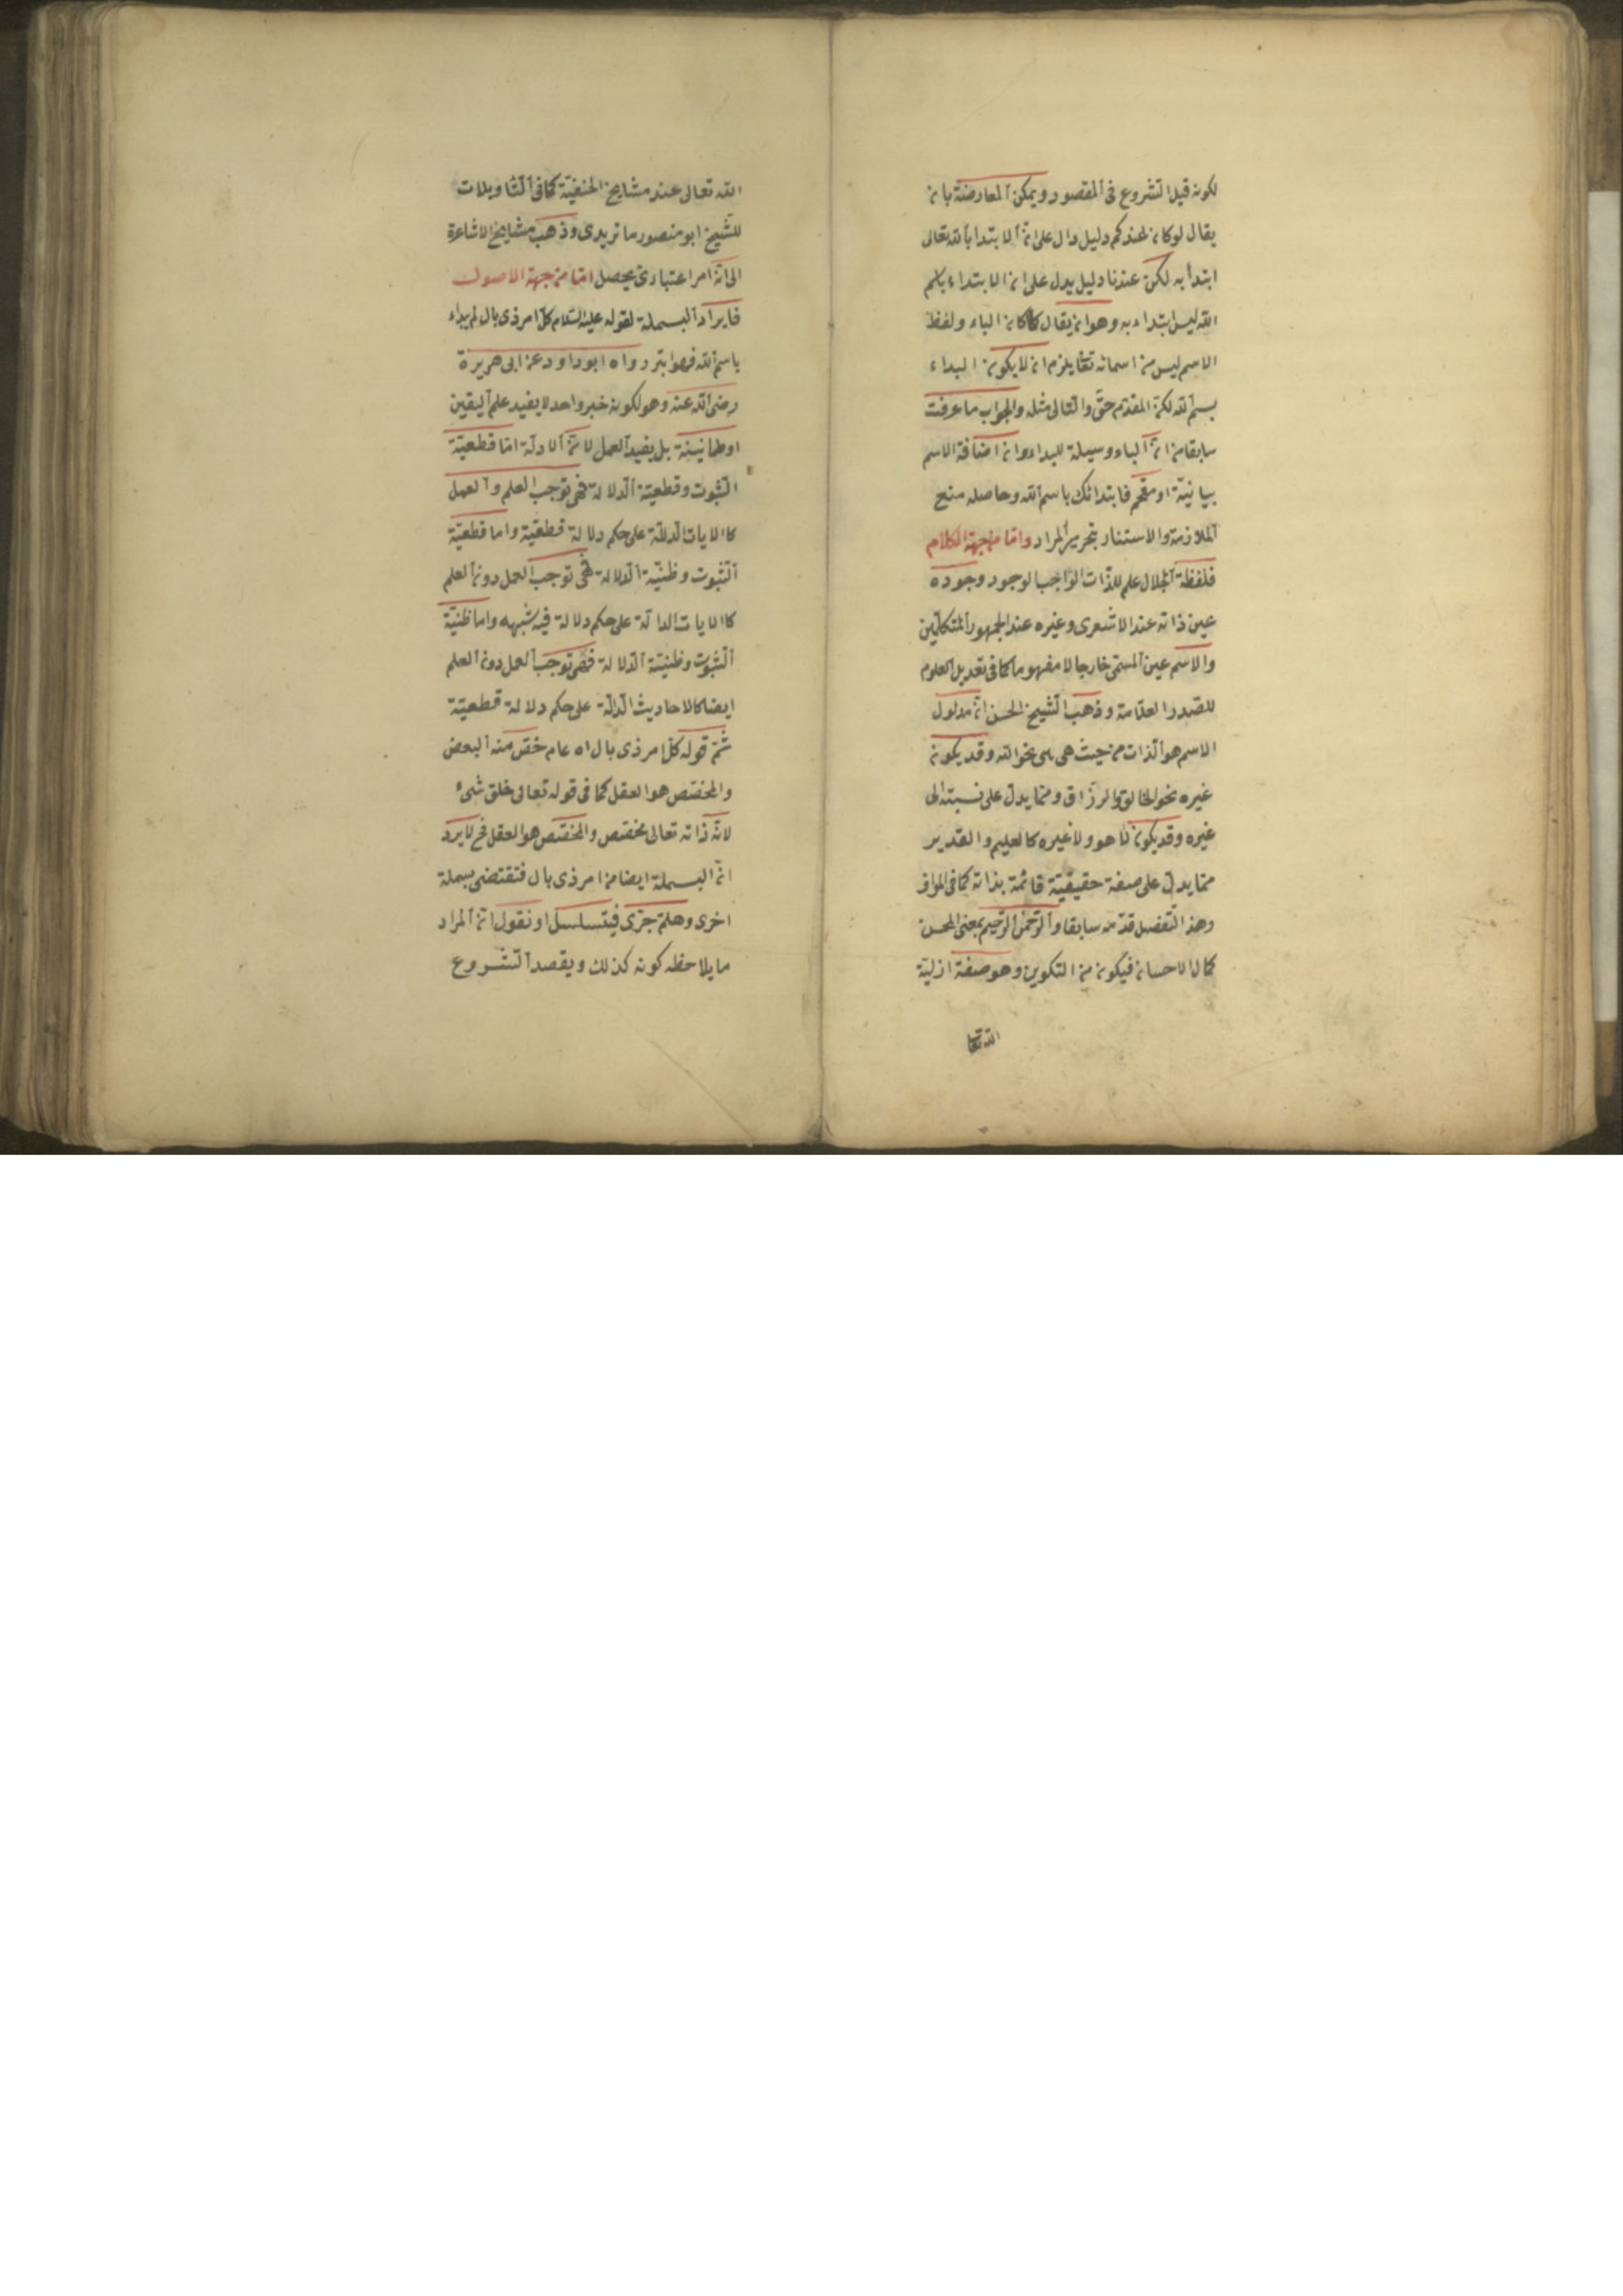 لكونه قبل الشروع فى المقصود ويمكن المعارضة بان
يقال لو كان عندكم دليل دال على ان الابتدا بالله تعالى
ابتدأ به لكن عندنا دليل يدل على ان الابتداء باسم
الله ليس ابتداء به وهو ان يقال كما كان الباء ولفظ
الاسم ليس من اسمائه تعا يلزم ان لا يكون البداء
بسم الله لكن المقدم حق والتالى مثله والجواب ما عرفت
سابقا من ان الباء وسيلة للبداء وان اضافة الاسم
بيانية او مقحم فابتدائك باسم الله وحاصله منع
الملازمة والاستناد بتحرير المراد واما من جهة الكلام
فلفظة الجلال علم للذات الواجب الوجود وجوده
عين ذاته عند الاشعرى وغيره عند الجمهور المتكلمين
والاسم عين المسمى خارجا لا مفهوما كما فى تعديل العلوم
للصدر العلامة وذهب الشيخ الحسن ان مدلول
الاسم هو الذات من حيث هى هى نحو الله وقد يكون
غيره نحو الخالق والرزاق ومما يدل على نسبته الى
غيره وقد يكون لا هو ولا غيره كالعليم والقدير
مما يدل على صفة حقيقية قائمة بذاته كما فى المواقف
وهذ التفصل قد مر سابقا والرحمن الرحيم بمعنى المحسن
كمال الاحسان فيكون من التكوين وهو صفة ازلية
الله تعا
الله تعالى عند مشايخ الحنفية كما فى التأويلات
للشيخ ابو منصور ماتريدى وذهب مشايخ الاشاعرة
الى انه امر اعتبارى يحصل اما من جهة الاصول
فايراد البسملة لقوله عليه السلام كل امر ذى بال لم يداء
باسم الله فهو ابتر رواه ابوداود عن ابى هريرة
رضى الله عنه وهو لكونه خبر واحد لا يفيد علم اليقين
او طمانينة بل يفيد العمل لان الادلة اما قطعية
الثبوت وقطعية الدلالة فهى توجب العلم والعمل
كالايات الدلالة على حكم دلالة قطعية واما قطعية
الثبوت وظنية الدلالة فهى توجب العمل دون العلم
كالايات الدالة على حكم دلالة فيه شبهه واما ظنية
الثبوت وظنية الدلالة فهى توجب العمل دون العلم
ايضا كالاحاديث الدالة على حكم دلالة قطعية
ثم قوله كل امر ذى بال اه عام خص منه البعض
والمخصص هو العقل كما فى قوله تعالى خلق شىء
لانه ذاته تعالى مخصص والمخصص هو العقل فح لا يرد
ان البسملة ايضا من امر ذى بال فتقتضى بسملة
اخرى وهلم جرى فيتسلسل او نقول ان المراد
ما يلاحظه كونه كذلك ويقصد الشروع